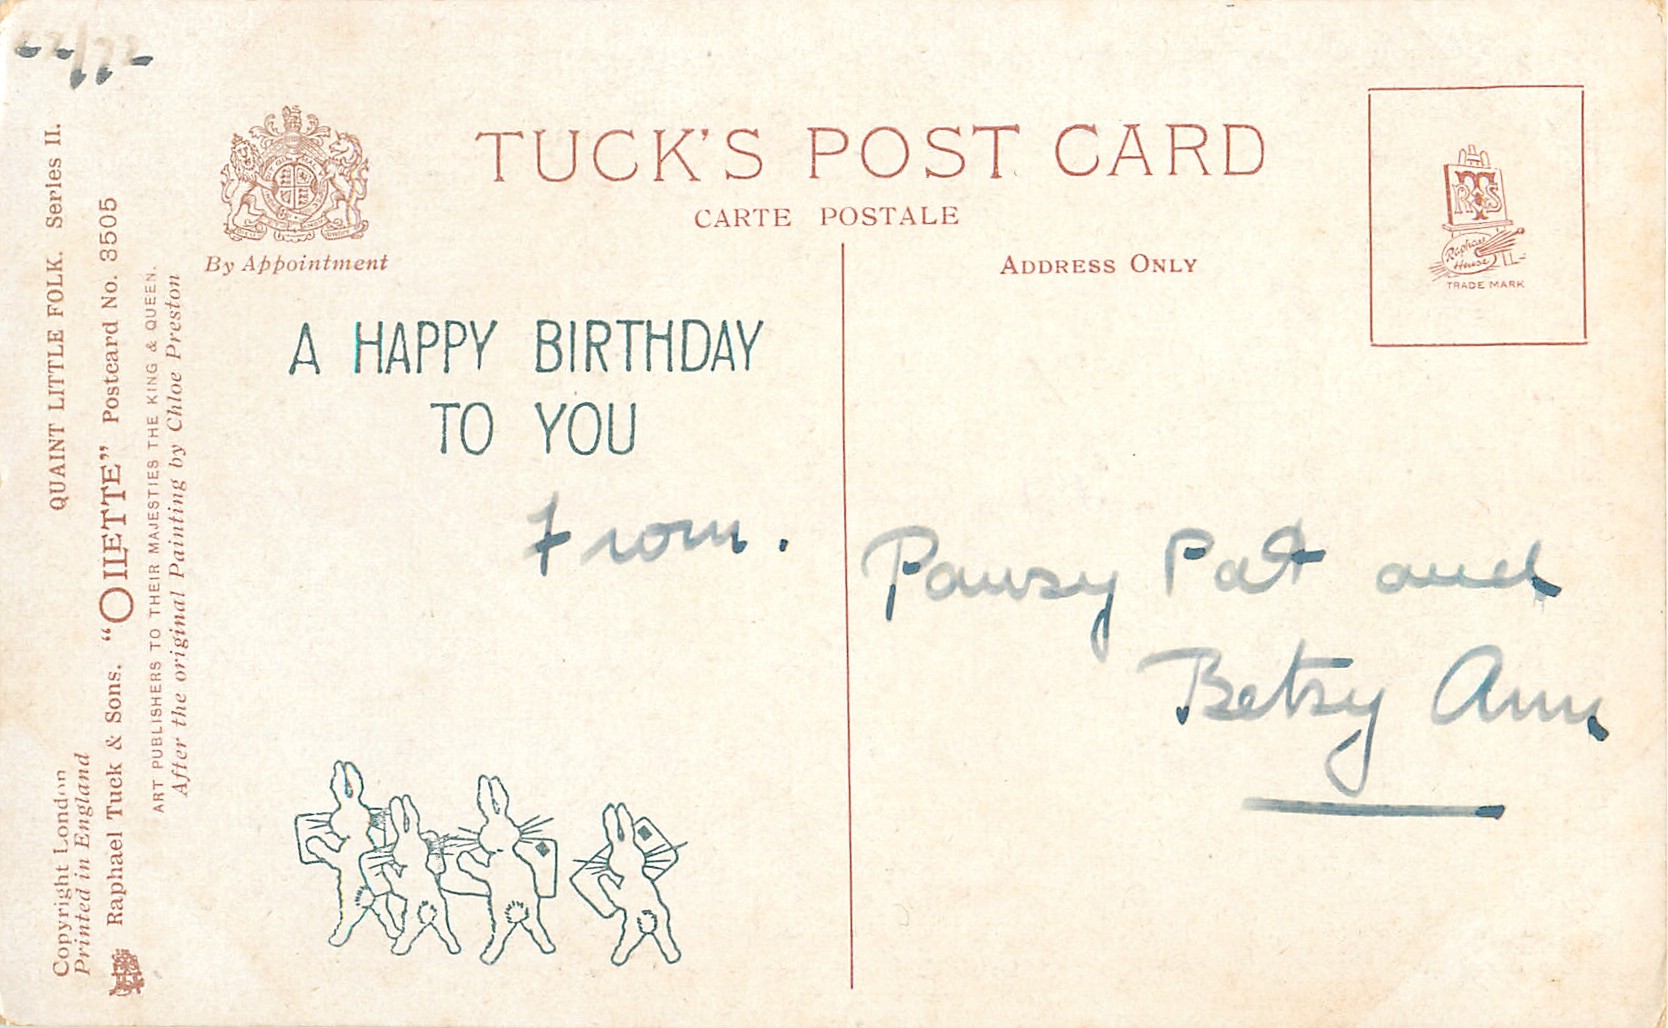 QUAINT LITTLE FOLK. Series II.
Copyright London
Printed in England
Raphael Tuck & Sons. "OILETTE" Postcard No. 3505
ART PUBLISHERS TO THEIR MAJESTIES THE KING & QUEEN.
After the original Painting by Chloe Preston
By Appointment
TUCK'S POST CARD
CARTE POSTALE
ADDRESS ONLY
RTS
Raphael
House
TRADE MARK
A HAPPY BIRTHDAY
TO YOU
From.
Pansy Pat and
Betsy Ann